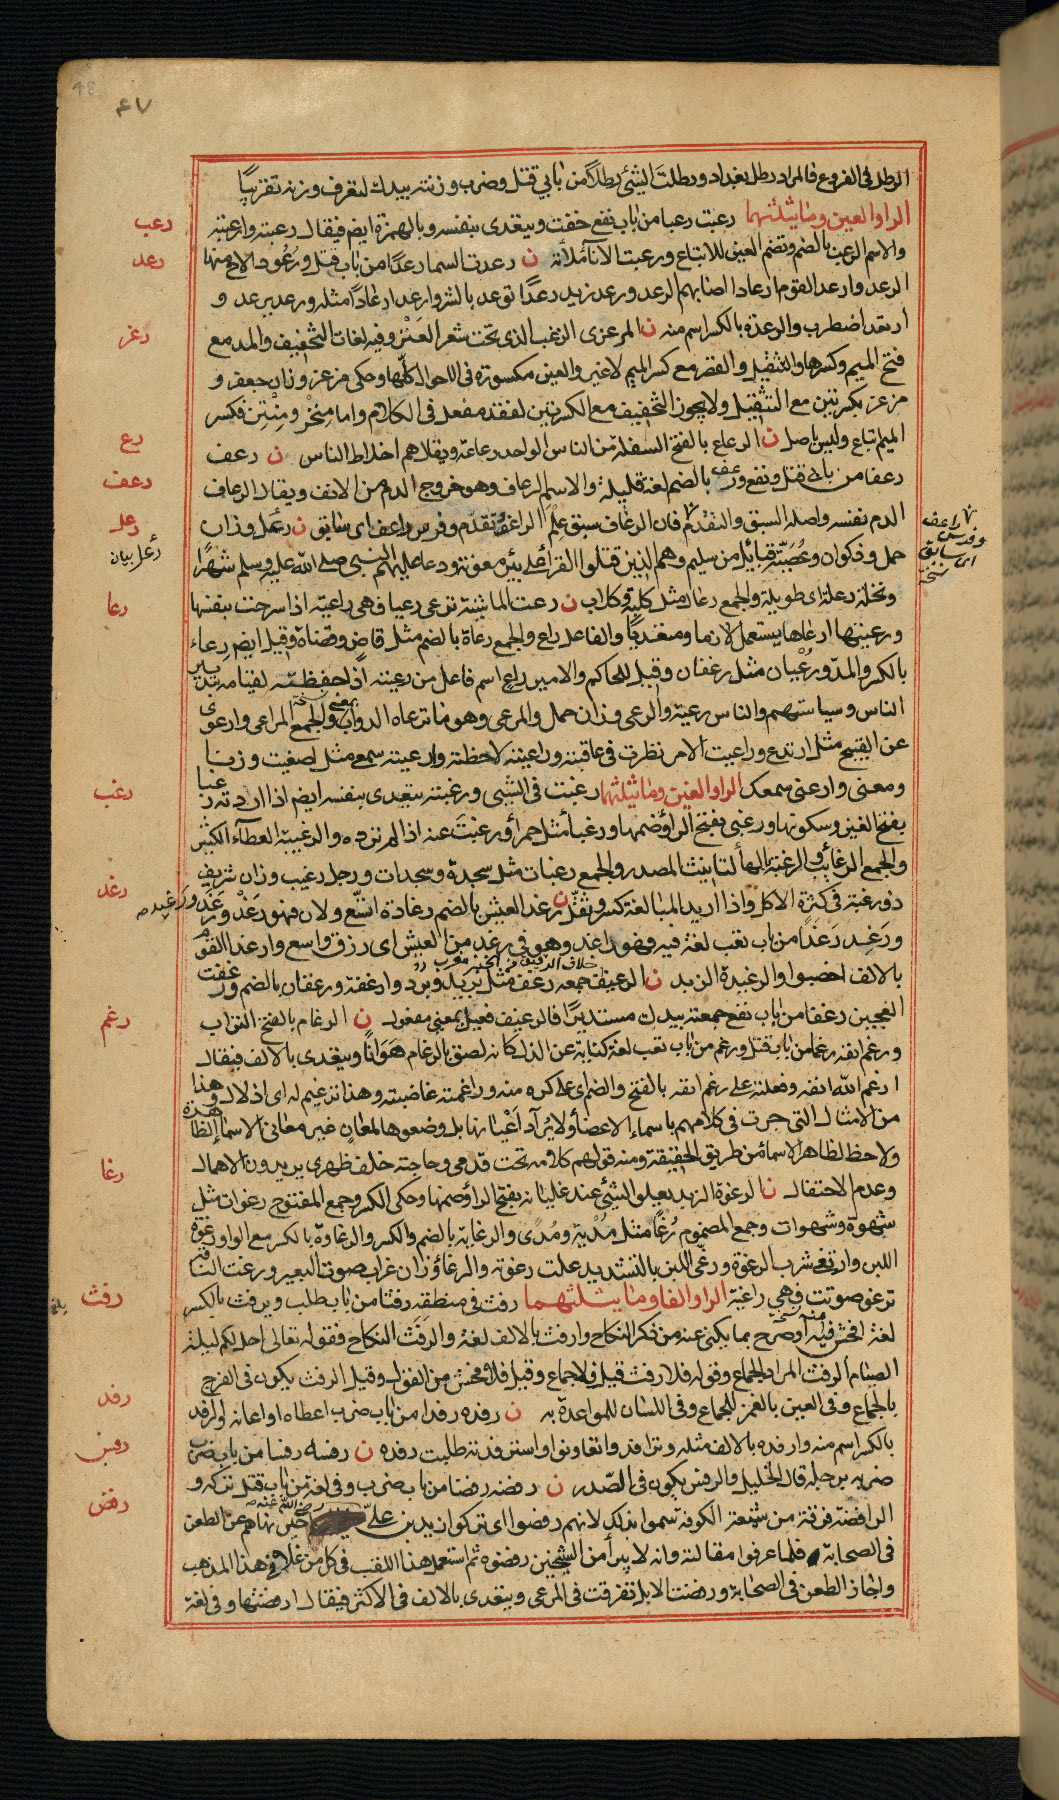 48
٤٧
الرطل فى الفروع فالمراد رطل بغداد ورطلت الشئ رطلا من بابي قتل وضرب وزنته بيدك لتعرف وزنه تقريبًا
الراء والعين وما يثلثهما رعبت رعبا من باب نفع خفت ويتعدى بنفسه وبالهمزة ايضا فيقال رعبته وارعبته
رعب
والاسم الرعب بالضم وتضم العين للاتباع ورعبت الاناء ملأته ن رعدت السماء رعدًا من باب قتل ورُعُودا لاح منها
رعد
الرعد وارعد القوم ارعادا اصابهم الرعد ورعد زيد رعدًا توعد بالشر وارعد ارعادًا مثله ورعد يرعد و
ارتعد اضطرب والرعدة بالكسر اسم منه ن المرعزى الزغب الذى تحت شعر العَنْز وفيه لغات التخفيف والمد مع
رعز
فتح الميم وكسرها والتثقيل والقصر مع كسر الميم لا غير والعين مكسورة فى الاحوال كلها وحكى مرعز وزان جعفر و
مرعز بكسرتين مع التثقيل ولا يجوز التخفيف مع الكسرتين لفقد مفعل فى الكلام واما مِنْخِر ومِنْتِن فكسر
الميم اتباع وليس باصل ن الرعاع بالفتح السفلة من الناس الواحد رعاعة ويقال هم اخلاط الناس ن رعف
رع
رعفا من بابى قتل ونفع ورعف بالضم لغة قليلة والاسم الرعاف وهو خروج الدم من الانف ويقال الرعاف
رعف
الدم نفسه واصله السبق والتقدم فان الرعاف سبق علم الراعف وتقدم وفرس راعف اى سابق ن رعل وزان
رعل
راعف وفرس اى سابق نسخة
حمل وذكوان وعُصَيّة قبائل من سليم وهم الذين قتلوا القراء على بئر معونة ودعا عليهم النبى صلى الله عليه وسلم شهرًا
رعل بيان
ونخلة رعلة اى طويلة والجمع رعال مثل كلبة وكلاب ن رعت الماشية ترعى رعيا فهى راعية اذا سرحت بنفسها
رعا
ورعيتها ارعاها يستعمل لازما ومتعديًا والفاعل راع والجمع رعاة بالضم مثل قاض وقضاة وقيل ايضا رعاء
بالكسر والمد ورُعْيان مثل رغفان وقيل للحاكم والامير راع اسم فاعل من رعيته اذا حفظته لقيامه بتدبير
الناس وسياستهم والناس رعية والرعى وزان حمل والمرعى وهو ما ترعاه الدواب والجمع المراعى وارعوى
عن القبيح مثل ارتدع وراعيت الامر نظرت فى عاقبته وراعيته لاحظته وارعيته سمعى مثل اصغيت وزنا
ومعنى وارعنى سمعك الراء والغين وما يثلثهما رغبت فى الشيى ورغبته يتعدى بنفسه ايضا اذا اردته رغبا
رغب
بفتح الغين وسكونها ورغبى بفتح الراء وضمها ورغباء مثل حمراء ورغبت عنه اذا لم ترده والرغيبة العطاء الكثير
والجمع الرغائب والرغبة بالهاء لتأنيث المصدر والجمع رغبات مثل سجدة وسجدات ورجل رغيب وزان شريف
ذو رغبة فى كثرة الاكل واذا اريد المبالغة كسر وثقل ن رغد العيش بالضم رغادة اتسع ولان فهو رَغَد ورغيد
رغد
ورَغِد رَغَدًا من باب تعب لغة فيه فهو راغد وهو فى رغد من العيش اى رزق واسع وارغد القوم
بالالف اخصبوا والرغيدة الزبد ن الرغيف جمعه رغف مثل بريد وبرد وارغفة ورغفان بالضم ورغفت
خلاف الرقيق من الخبز معرب
العجين رغفا من باب نفع جمعته بيدك مستديرًا فالرغيف فعيل بمعنى مفعول ن الرغام بالفتح التراب
رغم
ورغم انفه رغما من باب قتل ورغم من باب تعب لغة كناية عن الذل كانه لصق بالرغام هَوَانًا ويتعدى بالالف فيقال
ارغم الله انفه وفعلته على رغم انفه بالفتح والضم اى على كره منه وراغمته غاضبته وهذا ترغيم له اى اذلال وهذا
من الامثال التى جرت فى كلامهم باسماء الاعضاء ولا يُرَاد اَعْيَانها بل وضعوها لمعان غير معانى الاسماء الظاهرة
ولا حظ لظاهر الاسماء من طريق الحقيقة ومنه قولهم كلامه تحت قدمى وحاجته خلف ظهرى يريدون الاهمال
وعدم الاحتفال ن الرغوة الزبد يعلو الشئ عند غليانه بفتح الراء وضمها وحكى الكسر وجمع المفتوح رغوات مثل
رغا
شهوة وشهوات وجمع المضموم رُغًا مثل مُدْية ومُدًى والرغاية بالضم والكسر والرغاوة بالكسر مع الواو رغوة
اللبن وارتغى شرب الرغوة ورغّى اللبن بالتشديد علت رغوته والرغاء وزان غراب صوت البعير ورغت الناقة
ترغو صوتت فهى راغية الراء والفاء وما يثلثهما رفث فى منطقه رفثا من باب طلب ويرفث بالكسر
رفث
لغة افحش فيه او صرح بما يكنى عنه من ذكر النكاح وارفث بالالف لغة والرَفَث النكاح فقوله تعالى احل لكم ليلة
الصيام الرفث المراد الجماع وقوله فلا رفث قيل فلا جماع وقيل فلا فحش من القول وقيل الرفث يكون فى الفرج
بالجماع وفى العين بالغمز للجماع وفى اللسان للمواعدة به ن رفده رفدا من باب ضرب اعطاه او اعانه والرفد
رفد
بالكسر اسم منه وارفده بالالف مثله وترافدوا تعاونوا واسترفدته طلبت رفده ن رفسه رفسا من باب ضرب
رفس
ضربه برجله قال الخليل والرفس يكون فى الصّدر ن رفضه رفضا من باب ضرب وفى لغة من باب قتل تركه و
رفض
الرافضة فرقة من شيعة الكوفة سموا بذلك لانهم رفضوا اى تركوا زيد بن على رضى الله عنه حين نهاهم عن الطعن
فى الصحابة فلما عرفوا مقالته وانه لا يبرأ من الشيخين رفضوه ثم استعمل هذا اللقب فى كل من غلا فى هذا المذهب
واجاز الطعن فى الصحابة ورفضت الابل تفرقت فى المرعى ويتعدى بالالف فى الاكثر فيقال ارفضتها وفى لغة